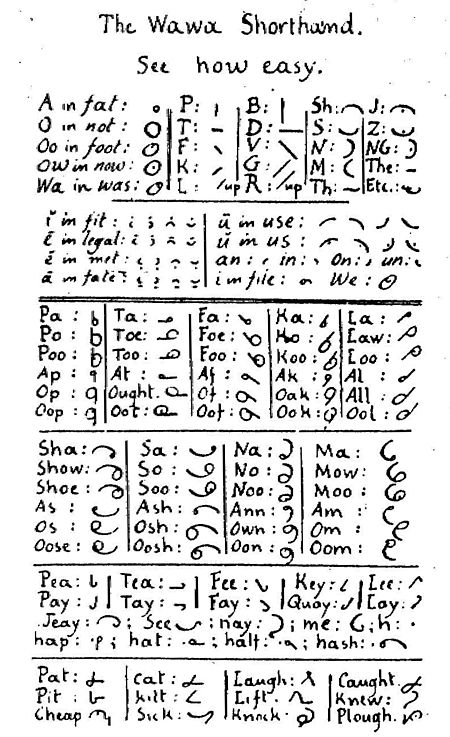 The Wawa Shorthand.
See how easy.
A in fat: P: B: Sh: J:
O in not: T: D: S: Z:
Oo in foot: F: V: N: NG:
Ow in now: K: G: M: The:
Wa in was: L: /up R: /up Th: Etc.:
ĭ in fit: ū in use:
ē in legal: ŭ in us:
ĕ in met: an: in: On: un:
ā in fate: i in file: We:
Pa: Ta: Fa: Ka: La:
Po: Toe: Foe: Ko: Law:
Poo: Too: Foo: Koo: Loo:
Ap: At: Af: Ak: Al:
Op: Ought. Of: Oak: All:
Oop: Oot: Oof: Ook: Ool:
Sha: Sa: Na: Ma:
Show: So: No: Mow:
Shoe: Soo: Noo: Moo:
As: Ash: Ann: Am:
Os: Osh: Own: Om:
Oose: Oosh: Oon: Oom:
Pea: Tea: Fee: Key: Lee:
Pay: Tay: Fay: Quay: Lay:
Jeay: ; See ; nay: ; me: ; h:
hap: ; hat: ; half: ; hash:
Pat: Cat: Laugh: Caught.
Pit: kilt: Lift. Knew:
Cheap Sick: Knock. Plough.